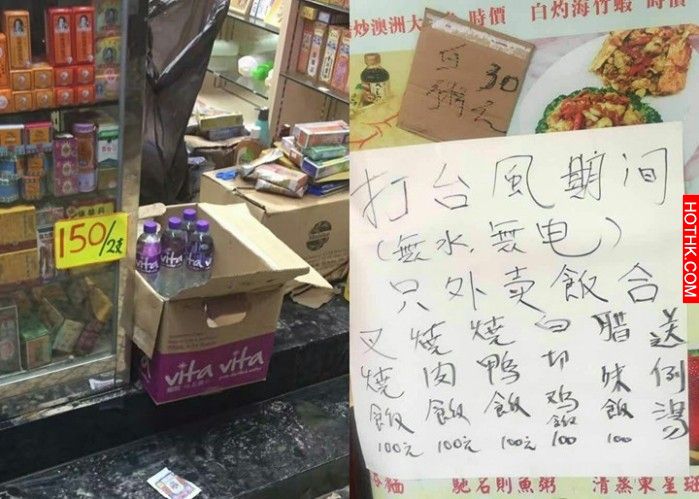 150/2支
vita
vita
vita vita
炒澳洲大
時價
白灼海竹蝦 時價
白粥
30元
打台風期间
(無水,無电)
只外卖飯合
叉燒飯100元
燒肉飯100元
燒鴨飯100元
白切鸡飯100
腊味飯100
送例湯
馳名則魚粥
清蒸東星斑
HOTHK.COM